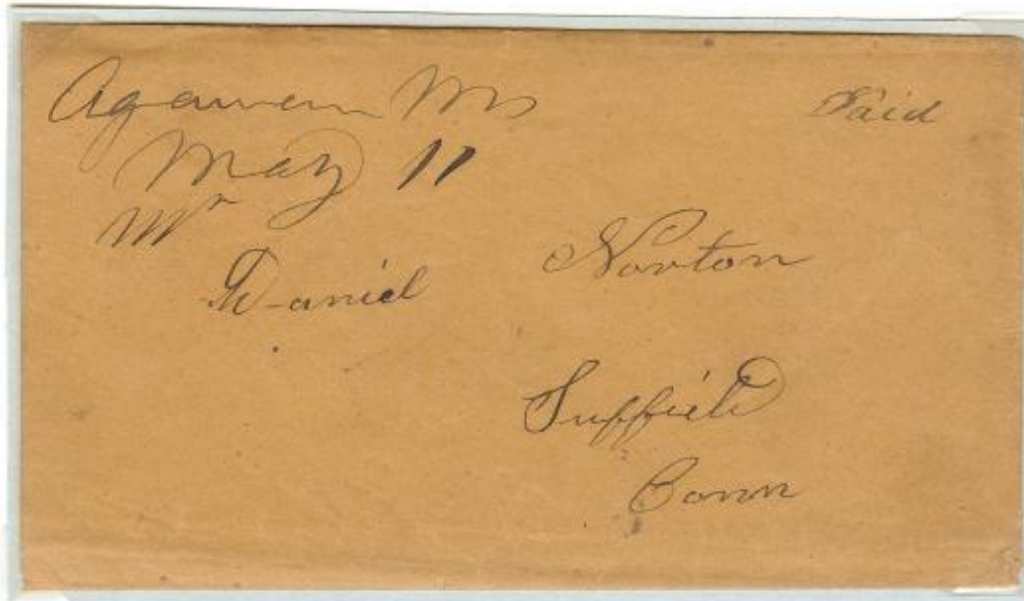 Agawam Ms
Paid
May 11
Mr
Daniel Norton
Suffield
Conn